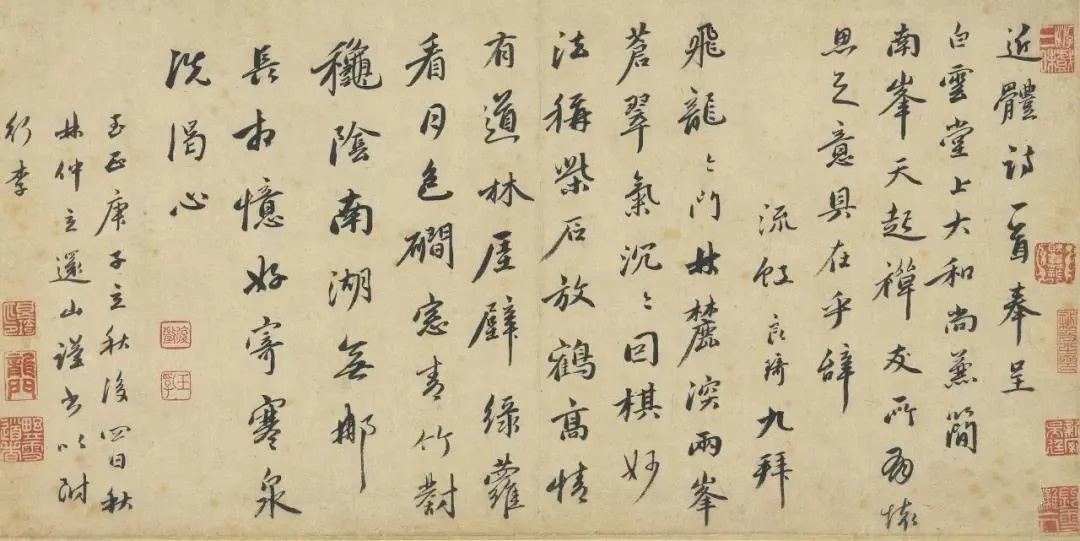 近體詩一首奉呈
白雲堂上大和尚兼簡
南峯天起禪友所為懷
思之意具在乎辭
流虹良琦九拜
飛龍〻門林麓深兩峯
蒼翠氣沉〻因棋妙
法稱柴石放鶴高情
有道林屋壁綠蘿
看月色磵窓青竹對
龝陰南湖無那
長相憶好寄寒泉
洗渴心
至正庚子立秋後四日秋
林仲立還山謹書以附
行李
龍門